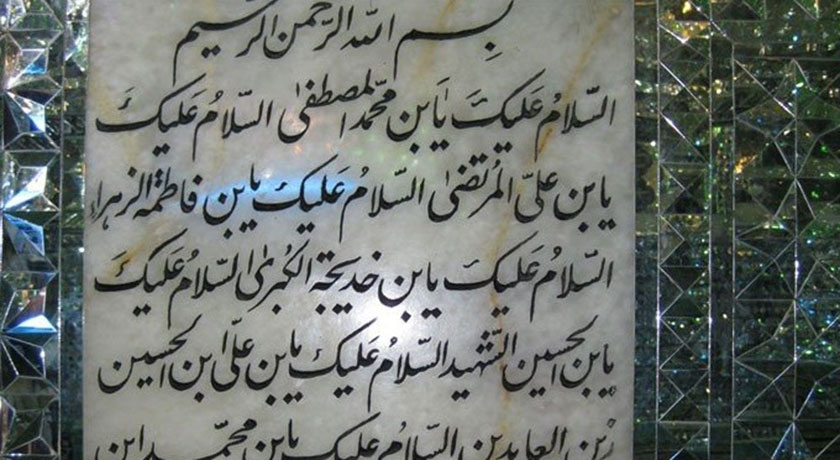 بِسم الله الرّحمن الرّحيم
السّلامُ عَليكَ يَابن محمّد المصطفىٰ السّلامُ عَليكَ
يابن علىّ المُرتضىٰ السّلامُ عَليكَ يابن فاطمة الزهراء
السّلامُ عَليكَ يابن خديجة الكُبرىٰ السّلامُ عَليكَ
يابن الحسين الشّهيد السّلامُ عَليكَ يابن علىّ ابن الحسين
زين العابدين السّلامُ عليك يابن محمّد ابن